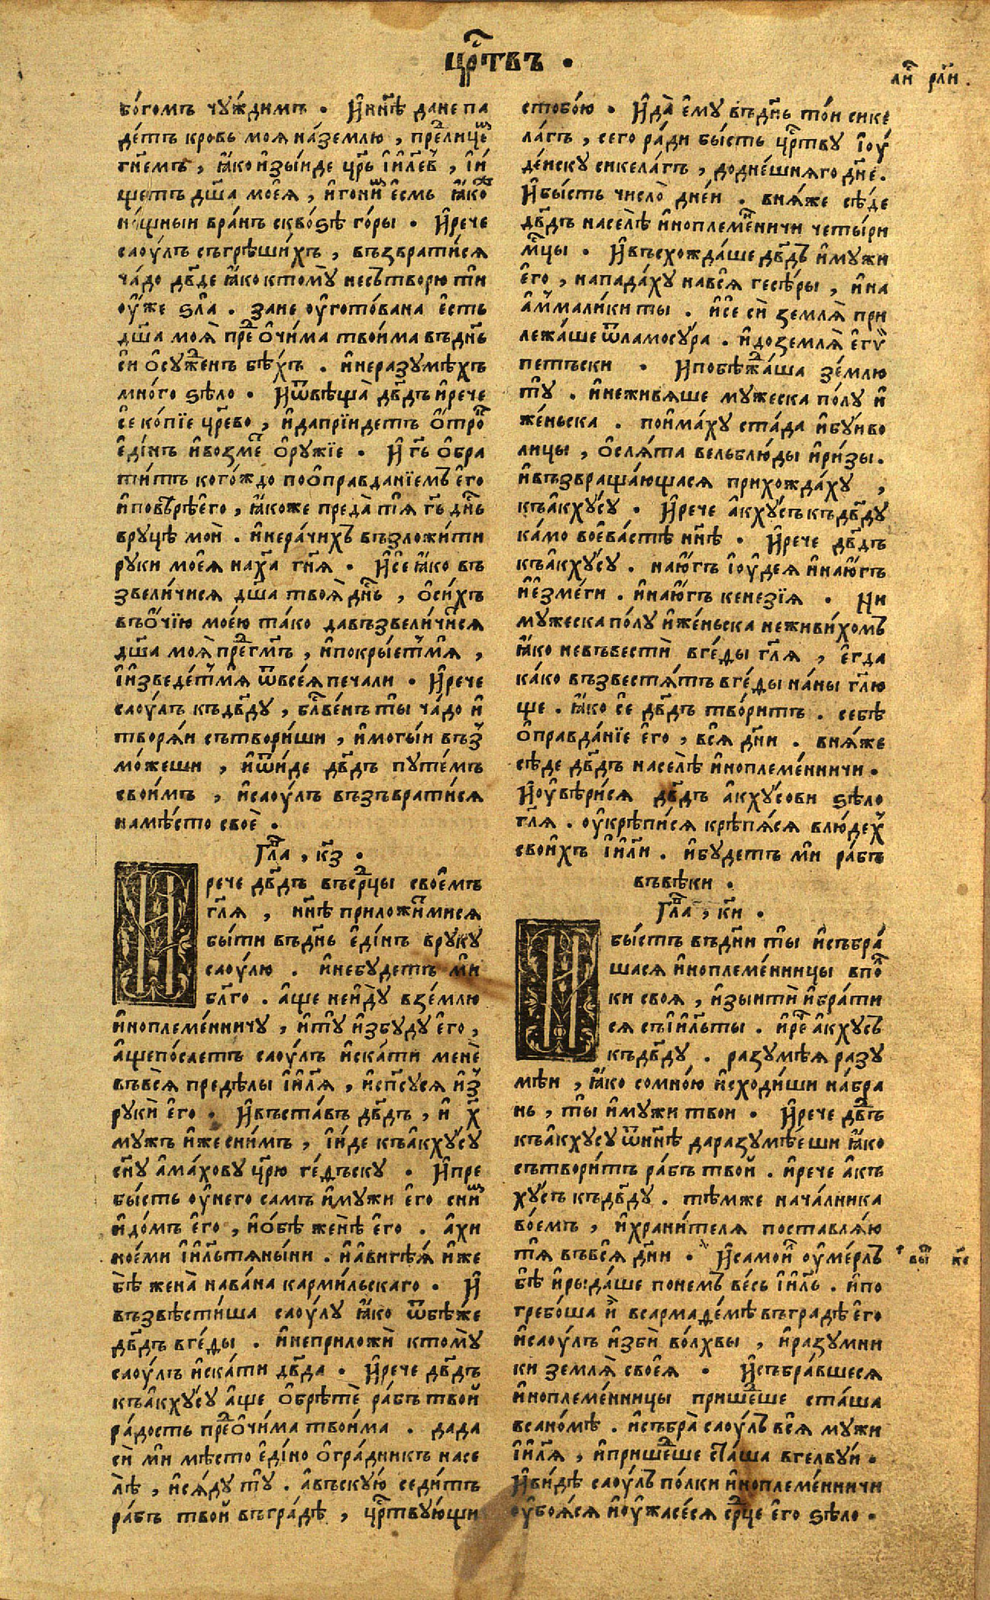 цр҃твъ .
бо́гомъ чу́ждимъ . И҆нн҃ѣ да не па
де́тъ кровь моя̀ на́землю , пре́лице
гн҃емъ , ꙗ҆ко и҆зы́йде цр҃ь і҆и҃левъ , и҆и́
щетъ дш҃а мое́я , и҆гони́ е҆смь ꙗ҆ко
но́щныи вра́нъ сквозѣ го́ры . И҆рече
саоу́лъ съгрѣши́хъ , възврати́ся
ча́до дв҃де ꙗ҆ко ктомꙋ̀ несътворю ти
оу҆же ѕла̀ . зане оу҆гото́вана е҆сть
дш҃а моя̀ пре о҆чи́ма твои́ма въдн҃ь
си о҆суженъ бѣ́хъ . и҆неразумѣ́хъ
мно́го ѕѣло . И҆ѿвѣща̀ дв҃дъ и҆рече
се ко́піе цр҃ево , и҆дапрїидетъ о҆тро
е҆ди́нъ и҆возме о҆ру́жїе . И҆ гь҃ о҆бра
ти́тъ кого́ждо поо҆правда́нїемъ е҆го
и҆повѣ́рѣе҆го , ꙗ҆коже преда̀ тя гь҃ дн҃ь
вру́цѣ мои̑ . и҆нерачи́хъ възложи́ти
руки мое́я наха гн҃я . И҆се ꙗ҆ко въ
звели́чися дш҃а твоя̀ дн҃ь , о҆си́хъ
въо҆чїю мое́ю та́ко давъзвели́чи́ся
дш҃а моя̀ пре гм҃ъ , и҆покры́етмя ,
і҆и҆зведе́тмя ѿвсея̀ печали . И҆рече
саоу́лъ къдв҃ду , бл҃ве́нъ ты ча́до и҆
творя́и сътвори́ши , и҆мога́и въз
мо́жеши , и҆ѿи́де дв҃дъ путе́мъ
свои́мъ , и҆саоу́лъ възъврати́ся
намѣ́сто своѐ .
Гл҃а , к҃з .
И рече дв҃дъ въср҃цы своемъ
гл҃я , нн҃ѣ приложимися
бы́ти въдн҃ь е҆ди́нъ вру́ку
саоу́лю . и҆небу́детъ ми
бл҃го . а҆ще неи҆ду взе́млю
и҆ноплеме́нничу , и҆тꙋ и҆збу́ду е҆го ,
а҆щепо́слетъ саоу́лъ и҆ска́ти менѐ
въвся преде́лы і҆и҃ля , и҆сп҃суся и҆з
руки̑ е҆го . И҆въста́въ дв҃дъ , и҆ х҃
мужъ и҆же сни́мъ , і҆и́де къа҆кху́су
сн҃у а҆ма́хову цр҃ю ге́дъску . И҆пре
бы́сть оу҆него самъ и҆му́жи е҆го сни
и҆до́мъ е҆го , и҆о҆бѣ женѣ е҆го . а҆хи
но́еми і҆и҃льтяны́ни . и҆авиге́я и҆же
бѣ жена̀ нава́на карми́льскаго . И҆
възвѣсти́ша саоу́лу ꙗ҆ко ѿбѣже
дв҃дъ вге́ды . и҆неприложѝ ктомꙋ
саоу́лъ и҆ска́ти дв҃да . И҆рече дв҃дъ
къа҆кху́су а҆ще о҆брѣ́тѐ рабъ твои̑
радость прео҆чи́ма твои́ма . дада
си ми мѣ́сто е҆ди́но о҆гра́дникъ насе
лѣ , и҆ся́ду тꙋ . а҆въскую седи́тъ
ра́бъ твои̑ въгра́дѣ , цр҃твующи
стобо́ю . И҆да̀ е҆му въдн҃ь то́и сике
ла́гъ , сего ра́ди бы́сть цр҃тву і҆оу
де́иску сикела́гъ , додне́шняго дн҃е.
И҆бысть число̀ дне́и . вня́же сѣ́де
дв҃дъ населѣ и҆ноплеме́нничи четы́ри
мц҃ы . И҆въсхожда́ше дв҃дъ и҆му́жи
е҆го , напада́ху нався гесѣ́ры , и҆на
а҆маликиты . и҆се сѝ земля̀ при
лежа́ше ѿламосу́ра . и҆доземля̀ е҆гѵ
петъски . И҆побѣжа́ша зе́млю
тꙋ . и҆неживя́ше му́жеска по́лу и҆
же́ньска . пои҆ма́ху ста́да и҆бу́иво
лицы , о҆сля́та вельблю́ды и҆ри́зы.
и҆възвраща́ющася прихожда́ху ,
къа҆кху́су . И҆рече а҆кху́съ къдв҃ду
ка́мо воева́стѣ нн҃ѣ . И҆рече дв҃дъ
къа҆кху́су . наю́гъ і҆оуде́я и҆наю́гъ
и҆е҆зме́ги . и҆наю́гъ кенезїя . Ни
му́жеска по́лу и҆же́ньска неживи́хомъ
ꙗ҆ко невъвести̑ вге́ды гл҃я , е҆гда
ка́ко възвестя́тъ вге́ды на́ны гл҃ю
ще . ꙗ҆ко се дв҃дъ твори́тъ . себѣ
о҆правда́нїе е҆го , вся дн҃и . вня́же
сѣ́де дв҃дъ населѣ и҆ноплеме́нничи .
И҆оу҆вѣ́рися дв҃дъ а҆кху́сови ѕѣло
гл҃я . оу҆крѣпи́ся крѣпя́ся влюде́х
свои́хъ і҆и҃ли . и҆бу́детъ ми ра́бъ
въвѣ́ки .
Гл҃а , к҃и .
И бы́сть въдн҃и ты и҆събра́
шася и҆ноплеме́нницы впо
ки своя̀ , и҆зыити̑ и҆бра́ти
ся съі҆и҃льты . и҆ре а҆кхусъ
къдв҃ду . разумѣ́я разу
мѣи , ꙗ҆ко сомно́ю и҆схо́диши на́бра
нь , ты и҆му́жи твои . И҆рече дв҃ъ
къа҆кху́су ѿнн҃ѣ даразумѣ́еши ꙗ҆ко
сътвори́тъ ра́бъ тво́й . и҆рече а҆къ
ху́съ къдв҃ду . тѣ́мже нача́лника
во́емъ , и҆храни́теля поставля́ю
тя въвся дн҃и . И҆самои оу҆ме́рлъ
бѣ и҆рыда́ше понемъ ве́сь і҆и҃ль . и҆по
гребо́ша и҆ всармаде́мѣ въгра́дѣ е҆го
и҆саоу́лъ и҆збѝ во́лхвы , и҆разу́мни
ки земля̀ свое́я . И҆събра́вшеся
и҆ноплеме́нницы пришеше ста́ша
всано́мѣ . и҆събра̀ саоу́лъ вся му́жи
і҆и҃ля , и҆пришеше ста́ша вгелву́и .
И҆ви́дѣ саоу́лъ по́лки и҆ноплеме́нничи
оу҆боя́ся и҆оу҆жасе́ся ср҃це е҆го ѕѣло .